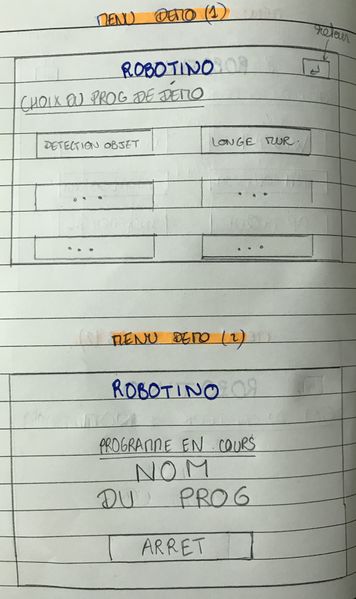 MENU DEMO (1)
Retour
ROBOTINO
↲
CHOIX DU PROG DE DÉMO
DETECTION OBJET
LONGE MUR
...
...
...
...
MENU DEMO (2)
ROBOTINO
PROGRAMME EN COURS
NOM
DU PROG
ARRET